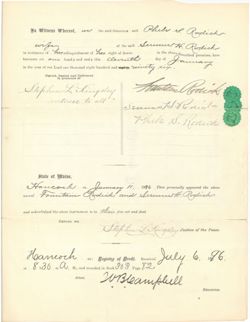 In Witness Whereof, we the said Grantors and Philis S. Rodick
wife of the said Serenus H. Rodick
in testimony of her relinquishment of her right of dower
in the above described premises, have
hereunto set our hands and seals this eleventh day of January
in the year of our Lord one thousand eight hundred and ninety six
Signed, Sealed and Delivered
in presence of
Stephen L. Kingsley
witness to all
Fountain Rodick
Serenus H. Rodick
Philis S. Rodick
State of Maine.
Hancock ss January 11, 1896 Then personally appeared the above
named Fountain Rodick and Serenus H. Rodick
and acknowledged the above instrument to be their free act and deed.
Before me,
Stephen L. Kingsley Justice of the Peace.
Hancock ss. Registry of Deeds. Received July 6, 1896.
at 8:30 A M., and recorded in Book 303 Page 82
Attest, W. B. Campbell
Register.